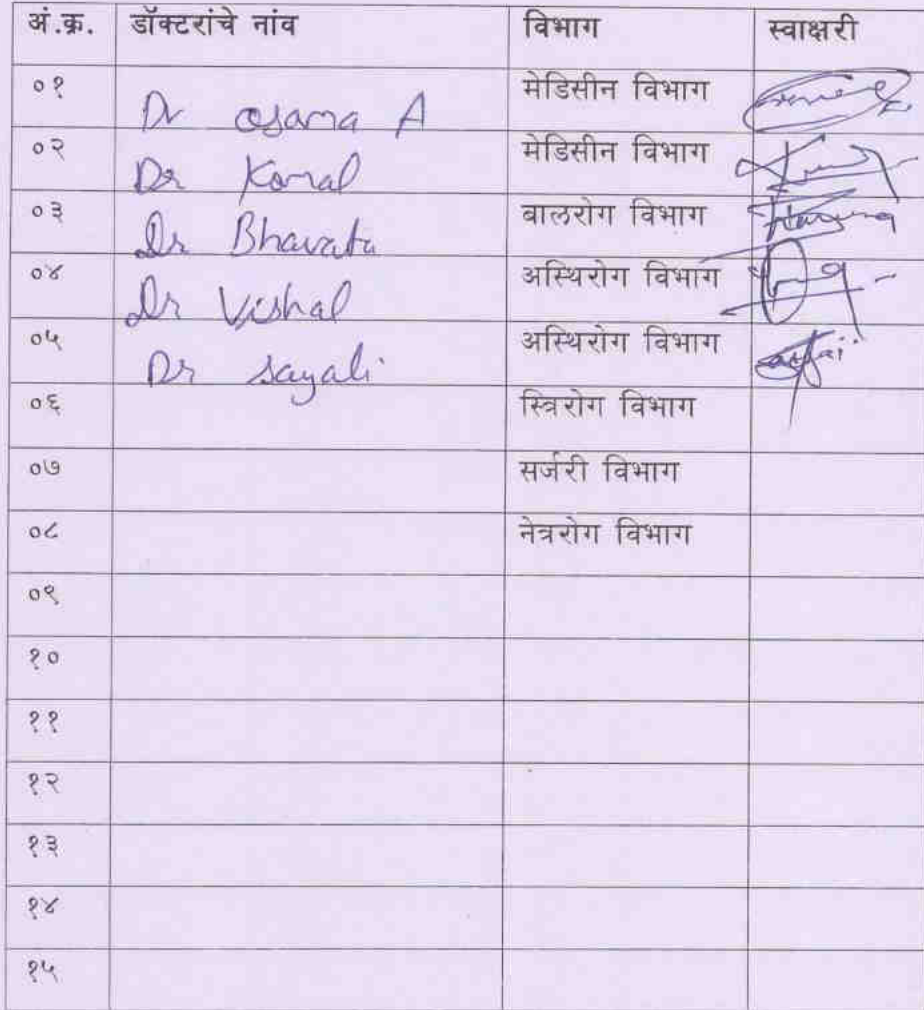 अं.क्र. डॉक्टरांचे नांव विभाग स्वाक्षरी
०१ Dr Osama A मेडिसीन विभाग
०२ Dr Komal मेडिसीन विभाग
०३ Dr Bhavata बालरोग विभाग
०४ Dr Vishal अस्थिरोग विभाग
०५ Dr Sayali अस्थिरोग विभाग
०६ स्त्रिरोग विभाग
०७ सर्जरी विभाग
०८ नेत्ररोग विभाग
०९
१०
११
१२
१३
१४
१५